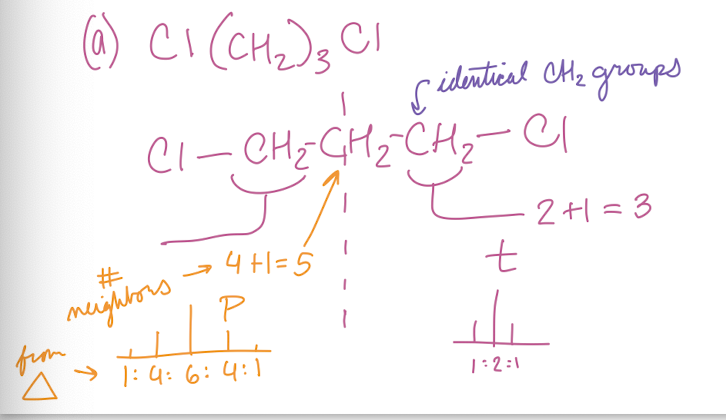 (a) Cl(CH₂)₃Cl
identical CH₂ groups
Cl—CH₂-CH₂-CH₂—Cl
2+1=3
# neighbors → 4+1=5
t
P
from △ → 1:4:6:4:1
1:2:1